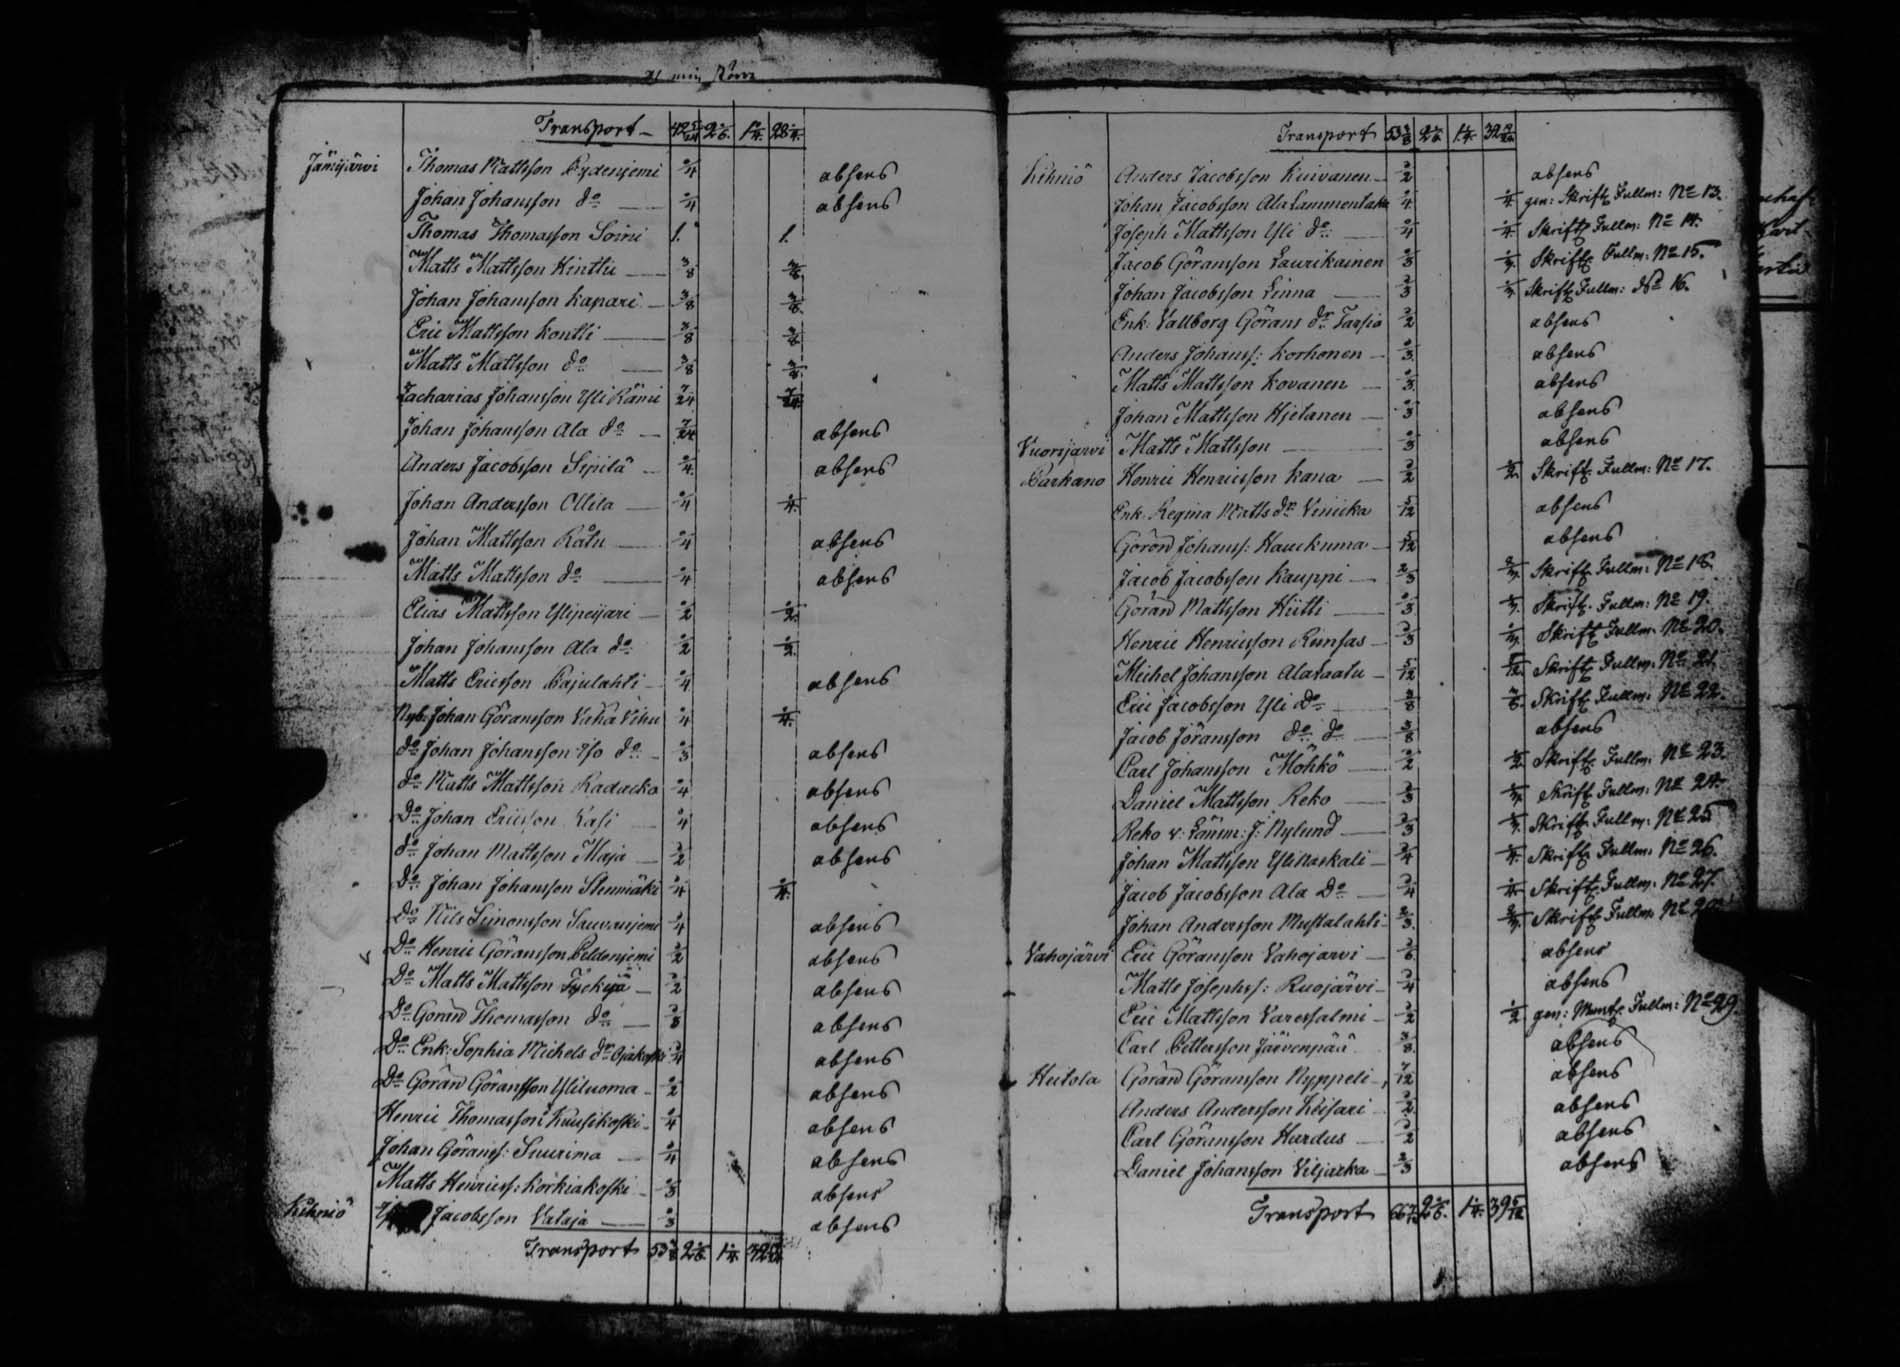 Transport 42 5/24 2 1/6. 1 1/4. 28 1/4.
Jämijärvi Thomas Mattsson Pydenjemi 1/4 absens
Johan Johansson do 1/4 absens
Thomas Thomasson Soini 1. 1.
Matts Mattsson Hinttu 3/8 3/8
Johan Johansson Kapari 3/8 3/8
Eric Mattsson Kontti 3/8 3/8
Matts Mattsson do 3/8 3/8
Zacharias Johansson Yli Rämi 7/24 7/24
Johan Johansson Ala do 7/24 absens
Anders Jacobsson Sipilä 1/4 absens
Johan Andersson Ollila 1/4 1/4
Johan Mattsson Råtu 1/4 absens
Matts Mattsson do 1/4 absens
Elias Mattsson Ylineijari 1/2 1/2
Johan Johansson Ala do 1/2 1/2
Matts Ericsson Pajulahti 1/4 absens
Nyb. Johan Göransson Vähä Vihu 1/4 1/4
do Johan Johansson Iso do 1/3 absens
do Matts Mattsson Kadacko 1/4 absens
Do Johan Ericsson Kasi 1/4 absens
do Johan Mattsson Maja 1/2 absens
Do Johan Johansson 1/4 1/4
Do Nils Simonsson 1/4 absens
Do Henric Göransson Peldenjemi 1/2 absens
Do Matts Mattsson 1/2 absens
Do Göran Thomasson do 1/3 absens
Do Enk: Sophia Michels dr Ojakoski 1/4 absens
Do Göran Göransson Yliluoma 1/2 absens
Henric Thomasson Kuusikoski 1/4 absens
Johan Görans: Suurima 1/4 absens
Matts Henrics: Korkiakoski 1/3 absens
Kihniö Jacobsson Vataja 1/3 absens
Transport 53 3/8 2 1/6. 1 1/4
Transport 53 3/8 2 1/6 1 1/4
Kihniö Anders Jacobsson Kuivanen 1/2 absens
Johan Jacobsson Ala Lammentaka 1/4 1/4 gen: Skriftl Fullm: No 13.
Joseph Mattsson Yli do 1/4 1/4 Skriftl Fullm: No 14.
Jacob Göransson Laurikainen 1/3 1/3 Skriftl Fullm: No 15.
Johan Jacobsson Linna 1/3 1/3 Skriftl Fullm: No 16.
Enk: Vallborg Görans dr Tarsia 1/2 absens
Anders Johans: Korhonen 1/3 absens
Matts Mattsson Kovanen 1/3 absens
Johan Mattsson Hjetanen 1/3 absens
Vuorijärvi Matts Mattsson 1/3 absens
Parkano Henric Henricsson Kana 1/2 1/2 Skriftl Fullm: No 17.
Enk: Regina Matts dr Viniicka 5/12 absens
Göran Johans: Hauckuma 5/12 absens
Jacob Jacobsson Kauppi 2/3 2/3 Skriftl Fullm: No 18.
Göran Mattsson Hiitti 1/3 1/3 Skriftl Fullm: No 19.
Henric Henricsson Runsas 1/3 1/3 Skriftl Fullm: No 20.
Michel Johansson Ala Raatu 5/12 5/12 Skriftl Fullm: No 21.
Eric Jacobsson Yli Do 3/8 3/8. Skriftl Fullm: No 22.
Jacob Jöransson do do 3/8 absens
Carl Johansson Möhkö 1/2 1/2 Skriftl Fullm: No 23.
Daniel Mattsson Reko 1/3 1/3 Skriftl Fullm: No 24.
Reko v: Länsm: J: Nylund 1/3 1/3 Skriftl Fullm: No 25
Johan Mattsson Yli Kaskali 1/4 1/4 Skriftl Fullm: No 26.
Jacob Jacobsson Ala Do 1/4 1/4 Skriftl Fullm: No 27.
Johan Andersson Mustalahti 2/3 2/3 Skriftl Fullm: No
Vahojärvi Eric Göransson Vahojärvi 1/6 absens
Matts Josephs: Ruojärvi 1/4 absens
Eric Mattsson Varessalmi 1/2 1/2 gen: Muntl. Fullm: No 29.
Carl Pettersson Järvenpää 3/8 absens
Heitola Göran Göransson Nyppeli 7/12 absens
Anders Andersson Keisari 1/2 absens
Carl Göransson Hurdus 1/2 absens
Daniel Johansson Viljacka 2/3 absens
Transport 2 1/6. 1 1/4.